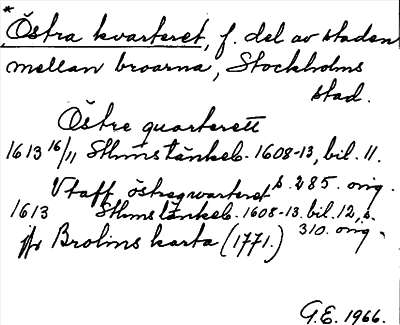 *
Östra kvarteret, f. del av staden
mellan broarna, Stockholms
stad.
Östre quarterett
1613 16/11 Sthms tänkeb. 1608-13, bil. 11.
s. 285. orig.
Vtaff östreqwarteret
1613 Sthms tänkeb. 1608-13. bil. 12, s.
310. orig.
jfr Brolins karta (1771.)
G.E. 1966.